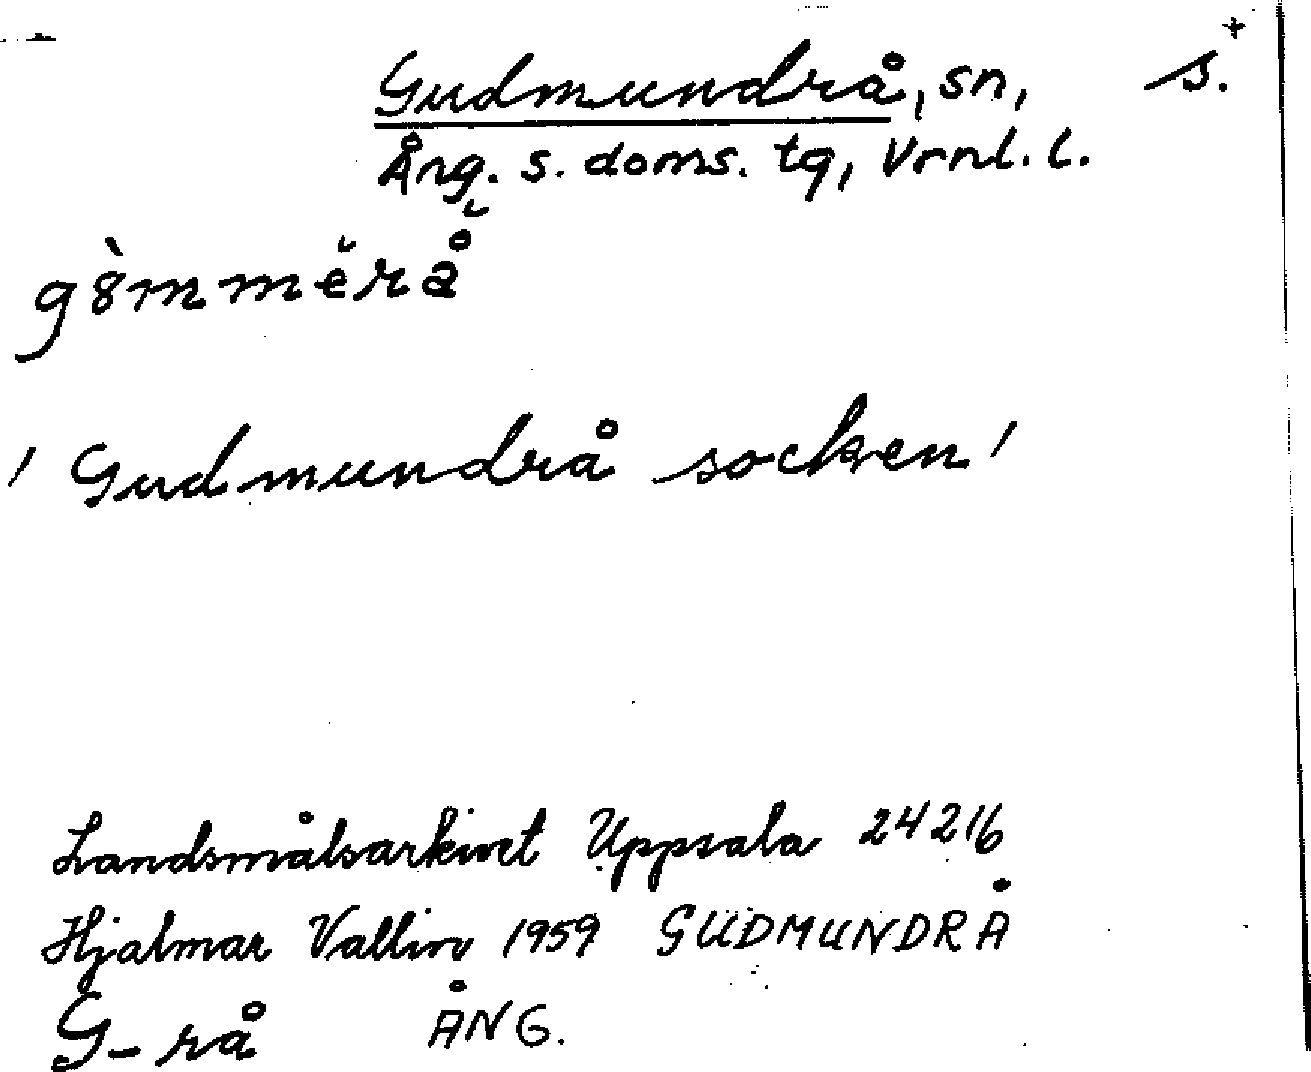 Gudmundrå, sn, s.+
Ång. s. doms. tg, Vrnl. l.
g8̀mmĕrå̆
' Gudmundrå socken '
Landsmålsarkivet Uppsala 24216
Hjalmar Vallin 1959 GUDMUNDRÅ
G-rå ÅNG.